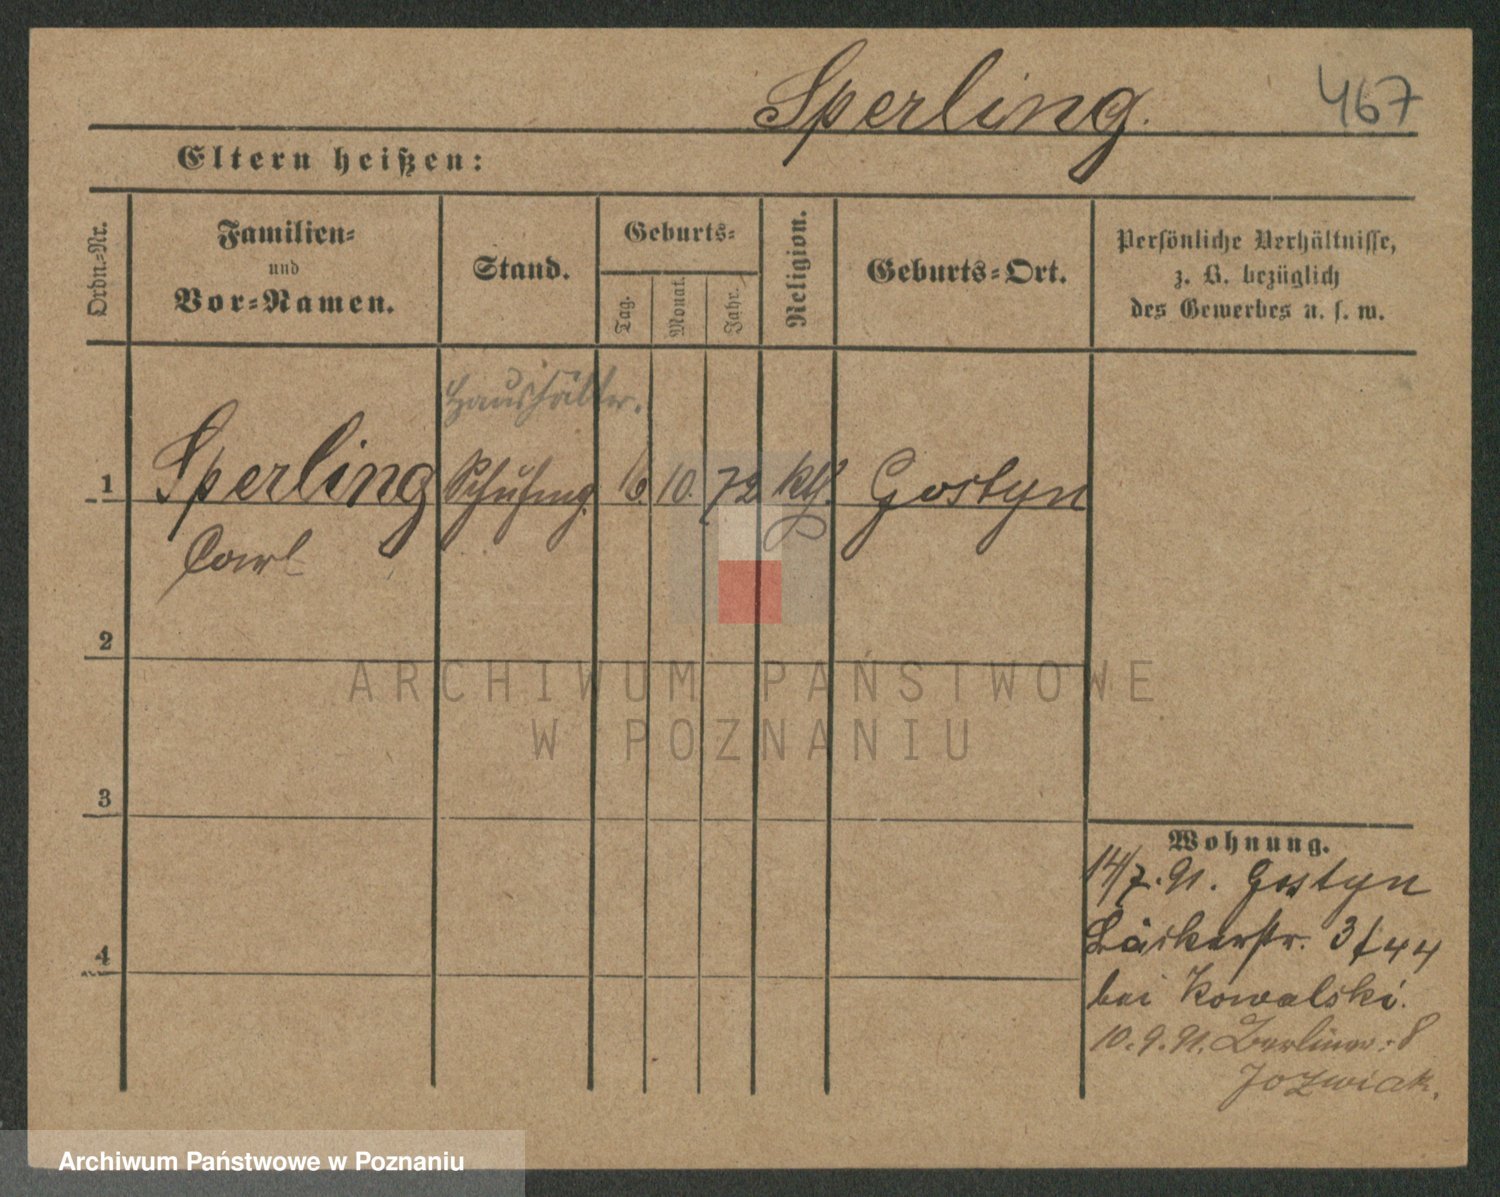 Sperling.
467
Eltern heißen:
Ordn.-Nr.
Familien-
und
Vor-Namen.
Stand.
Geburts-
Tag.
Monat.
Jahr.
Religion.
Geburts-Ort.
Persönliche Verhältnisse,
z. B. bezüglich
des Gewerbes u. s. w.
Haushälter.
1 Sperling Schuhmg. 6. 10. 72 kth. Gostyn
Carl
2
3
4
Wohnung.
14/7. 91. Gostyn
Bäckerstr. 3/44
bei Kowalski.
10.9.91. Berliner: 8
Jozwiak.
ARCHIWUM PAŃSTWOWE
W POZNANIU
Archiwum Państwowe w Poznaniu